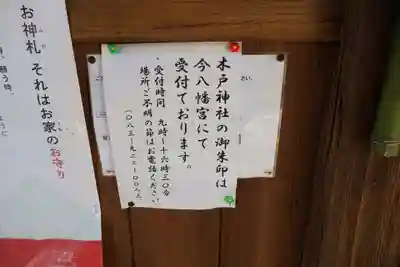 木戸神社の御朱印は
今八幡宮にて
受付ております。
・受付時間 九時~十六時三〇分
場所ご不明の節はお電話ください
お神札 それはお家のお守り